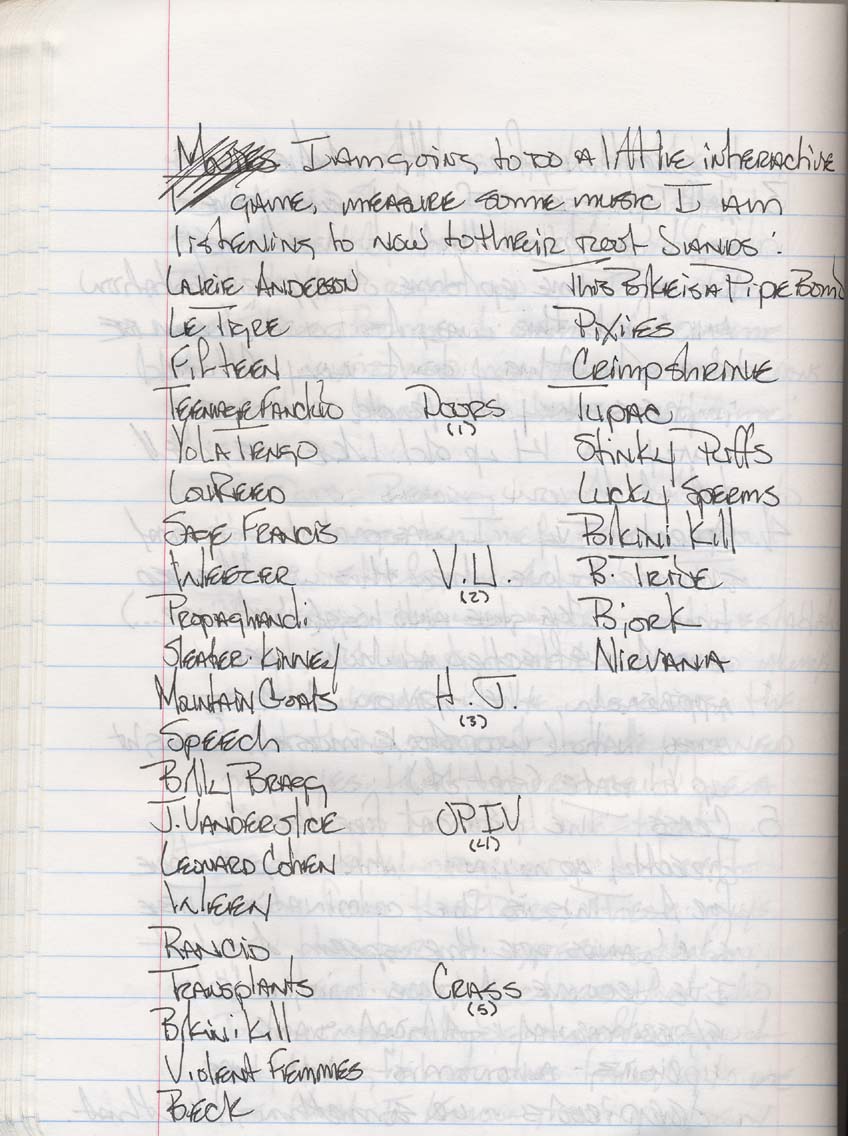 I am going to do a little interactive
game, measure some music I am
listening to now to their root bands:
Laurie Anderson This Bike is a Pipe Bomb
Le Tigre Pixies
Fifteen Crimpshrine
Teenage Fanclub Doors Tupac
(1)
Yo La Tengo Stinky Puffs
Lou Reed Lucky Sperms
Sage Francis Bikini Kill
Weezer V.U. B. Tribe
(2)
Propaghandi Bjork
Sleater-Kinney Nirvana
Mountain Goats H.J.
(3)
Speech
Billy Bragg
J. Vanderslice OPIV
(4)
Leonard Cohen
Ween
Rancid
Transplants Crass
(5)
Bikini Kill
Violent Femmes
Beck